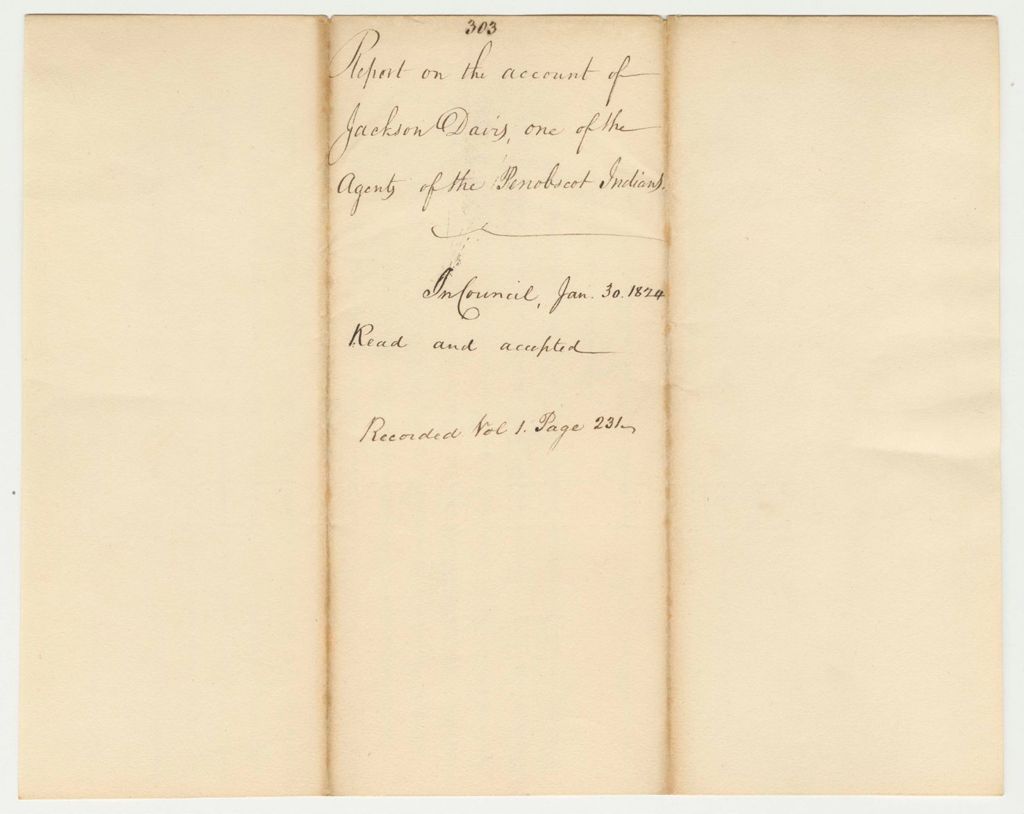 303
Report on the account of
Jackson Davis, one of the
Agents of the Penobscot Indians.
In Council, Jan. 30. 1824
Read and accepted
Recorded Vol 1. Page 231